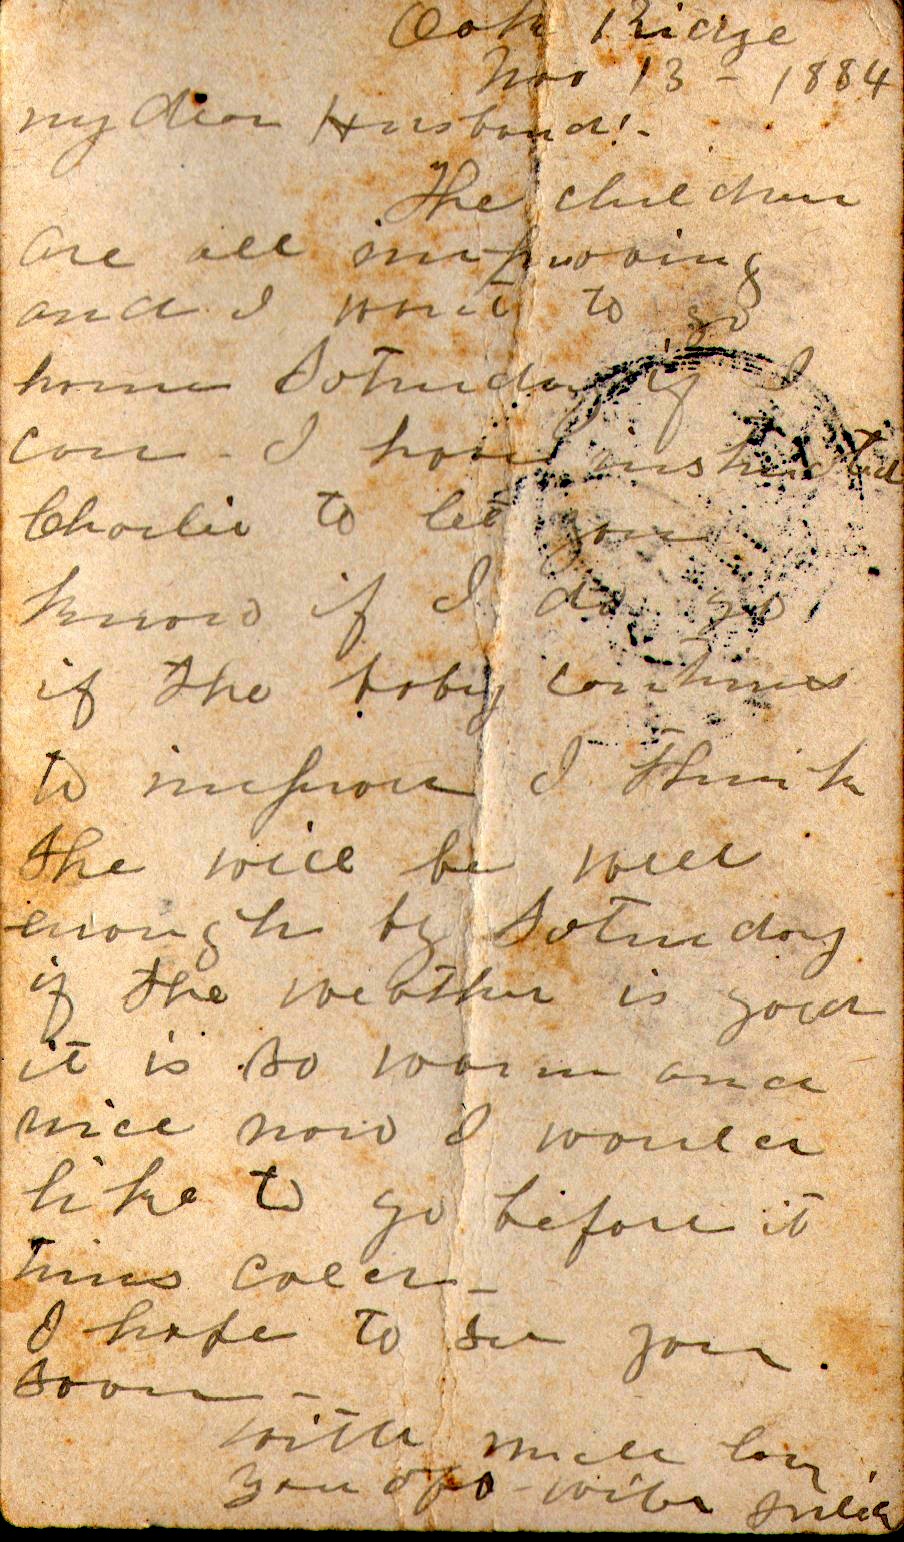 Oak Ridge
Nov 13 - 1884
My dear Husband!-
The children
are all improving
and I want to go
home Saturday if I
can - I have instructed
Charlie to let you
know if I do go
if the baby continues
to improve I think
she will be well
enough by Saturday
if the weather is good
it is so warm and
nice now I would
like to go before it
turns cold -
I hope to see you
soon -
with much love
your aff wife Julia